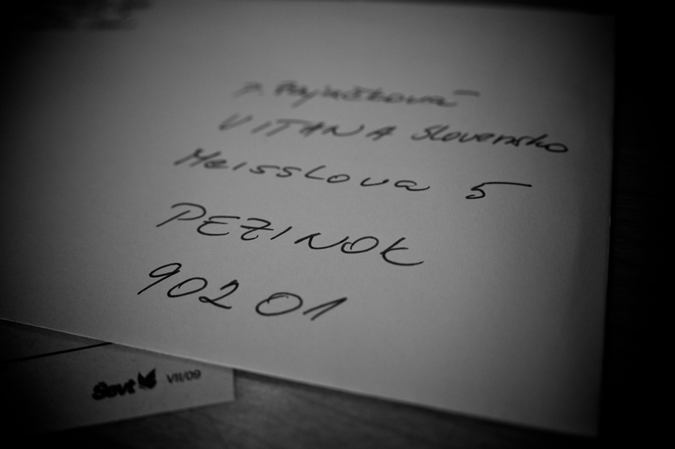 VITANA Slovensko
Meisslova 5
PEZINOK
902 01
Sevt VII/09